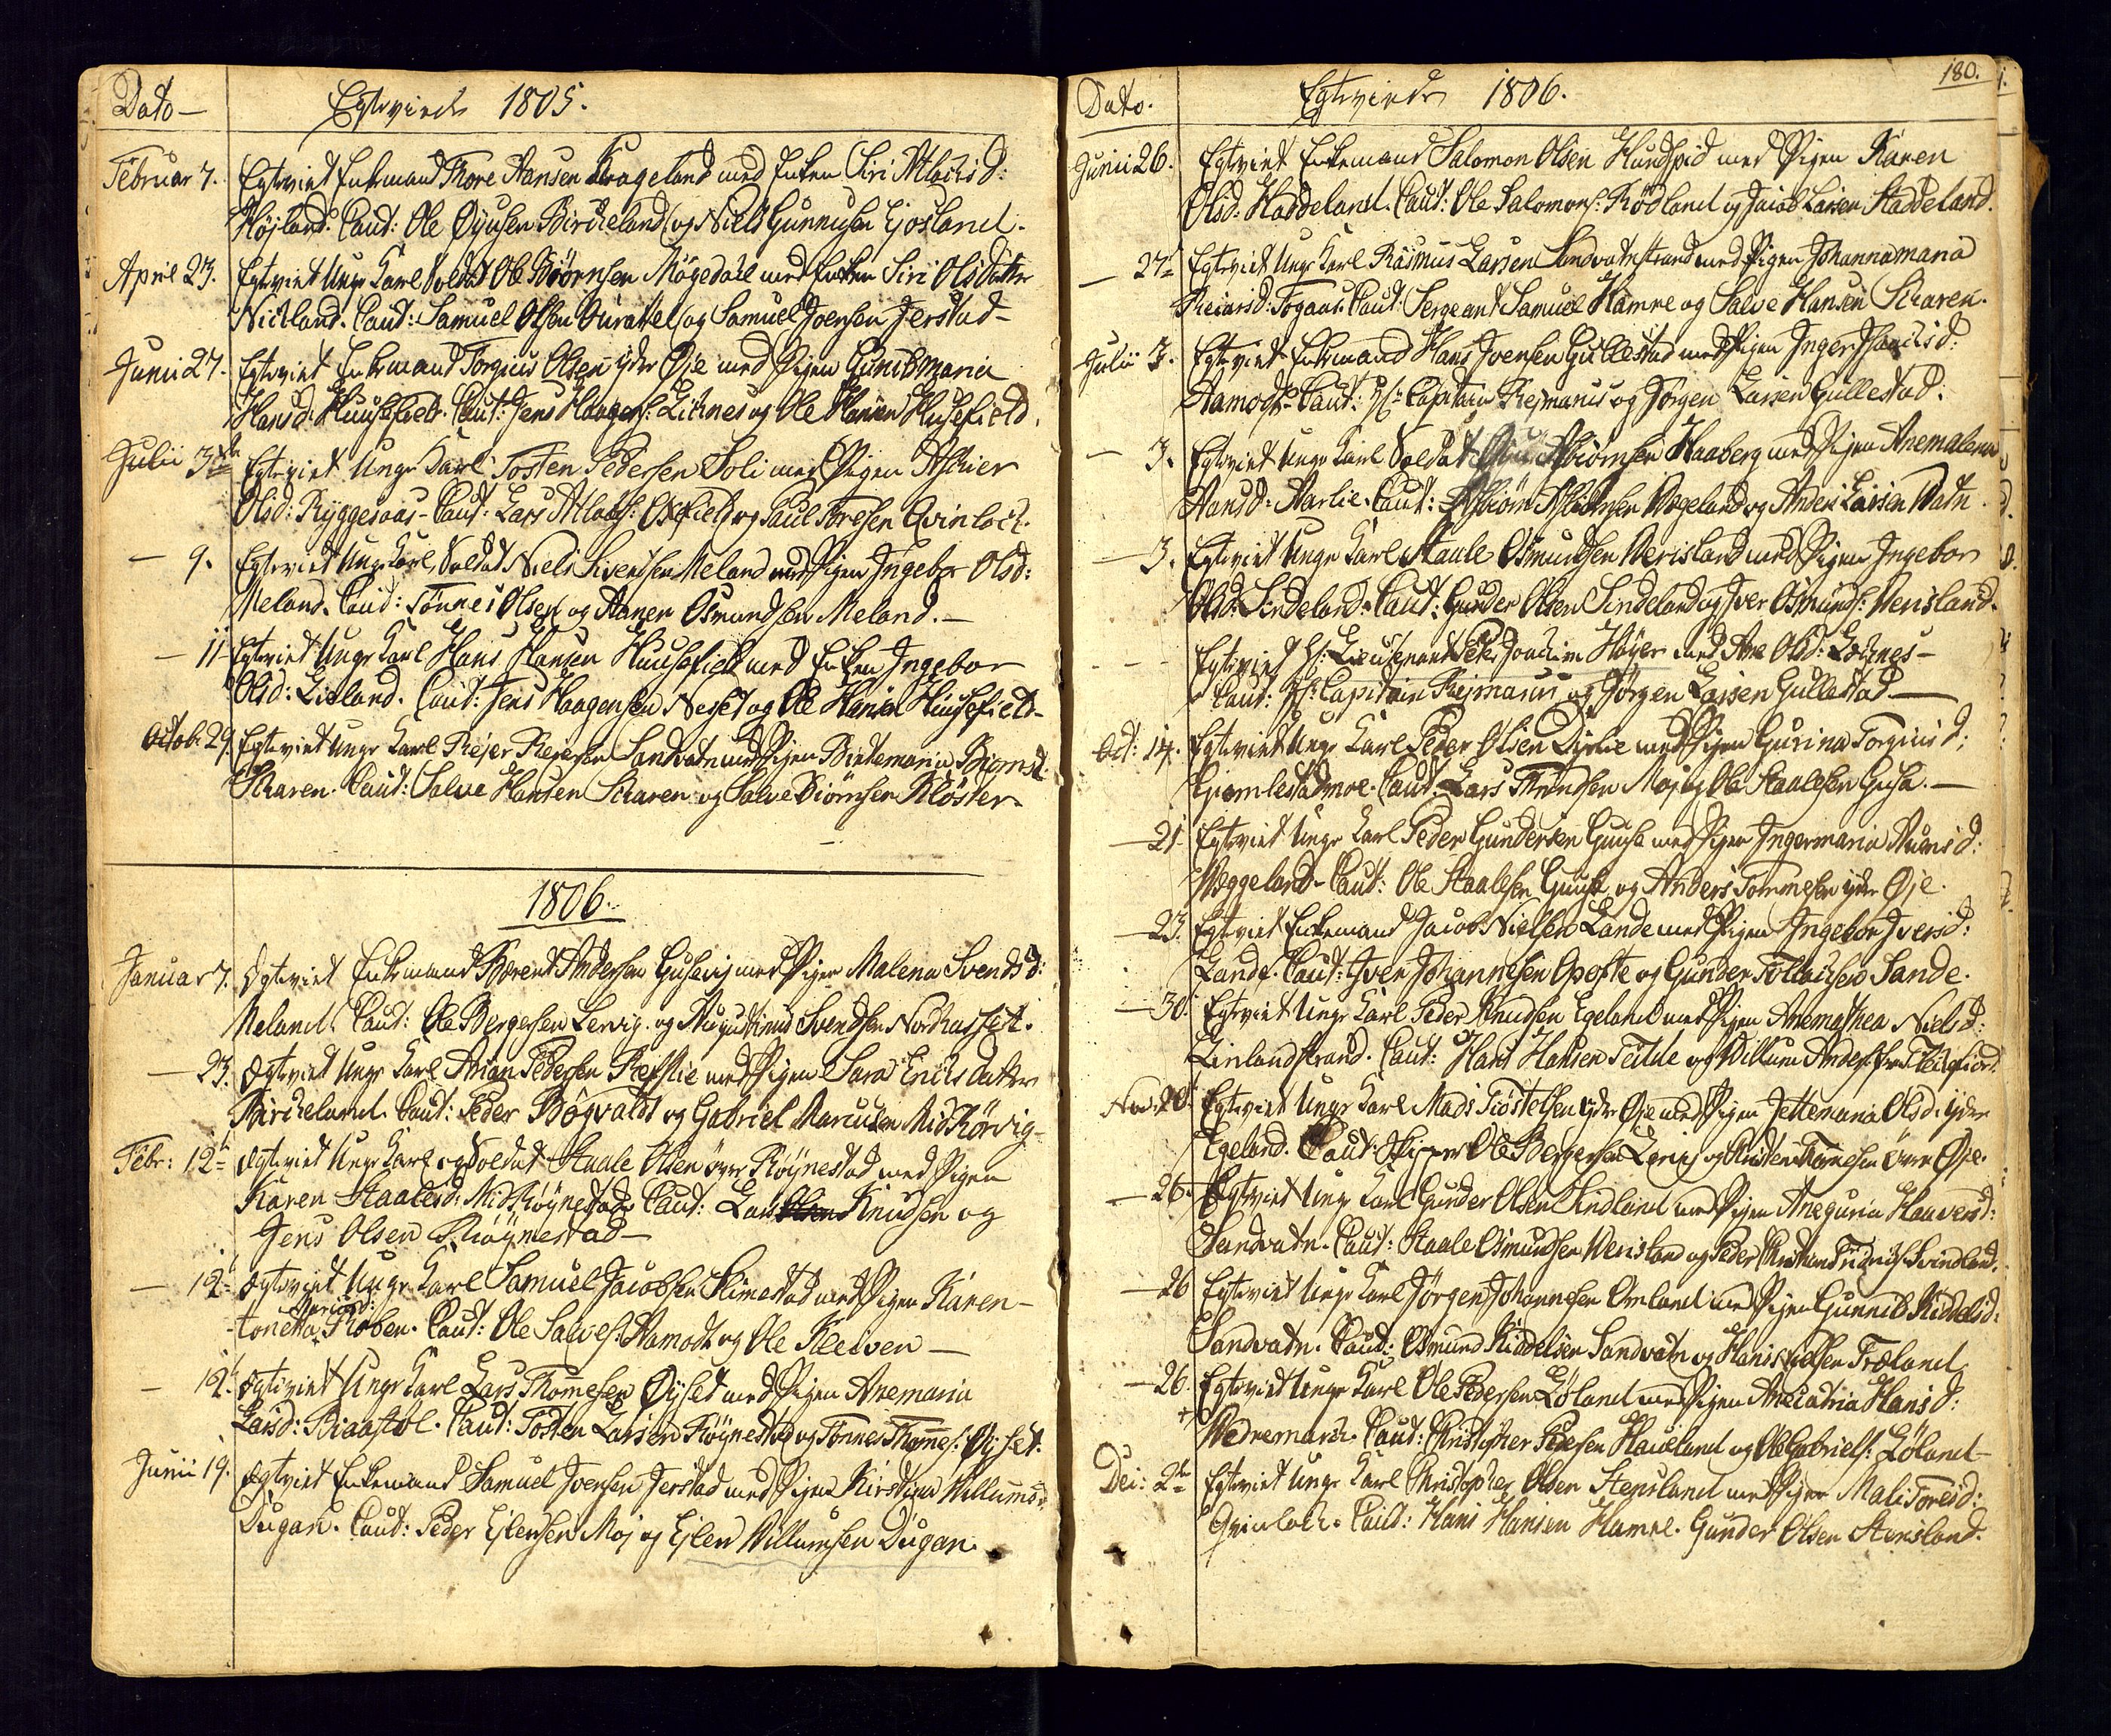 Dato — Egteviede 1805.
Februar 7. Egteviet Enkemand Thore Hansen Krageland med Enken Siri Atlachsd:
Højland. Caut: Ole Øysen Bircheland og Niels Gunnusen Eosland.
April 23. Egteviet Unge Karl Soldat Ole Biörnsen Mögedal med Enken Siri Olsdatter
Nieland. Caut: Samuel Olsen Ouratel og Samuel Joensen Jerstad —
Junii 27. Egteviet Enkemand Torgius Olsen yder Øje med Pigen Gunildmaria
Hansd: Huusefield. Caut: Jens Haagens: Lichnes og Ole Hansen Husefield.
Julii 3die Egteviet Unge Karl Tosten Pedersen Soli med Pigen Aschier
Olsd: Ryggesaas - Caut: Lars Atlachs: Oxefield og Paul Toresen Qvinloch.
— 9. Egteviet Unge Karl, Soldat Niels Sivertsen Meland med Pigen Ingebor Olsd:
Meland. Caut: Tönnes Olsen og Aanen Osmundsen Meland. —
— 11 Egteviet Unge Karl Hans Hansen Huusefield med Enken Ingebor
Olsd: Lioland. Caut: Jens Haagensen Neset og Ole Hansen Huusefield —
Octob: 29. Egteviet Unge Karl Rejer Rejersen Sandvatn med Pigen Birtemaria Biornsd:
Scharen. Caut: Salve Hansen Scharen og Salve Biörnsen Klöster.
1806.
Januar 7. Egteviet Enkemand Berent Andersen Gusevig med Pigen Malena Svendsd:
Meland. Caut: Ole Bergersen Lervig og Augustinus Svendsen Nordhassel.
— 23. Egteviet Unge Karl Arian Pedersen Refslie med Pigen Sara Erichsdatter
Bircheland. Caut: Peder Bögvaldt og Gabriel Marcusen Midthörvig —
Febr: 12te Egteviet Unge Karl og Soldat Staale Olsen övre Röynestad med Pigen
Karen Staalesd: Midtröynestad. Caut: Lars Olsen Knudsen og
Jens Olsen Röynestad —
— 12te Egteviet Unge Karl Samuel Jacobsen Slimestad med Pigen Karen-
Mariusd:
tonetta Roben. Caut: Ole Salves: Aamodt og Ole Kleiven —
— 12te Egteviet Unge Karl Lars Thomesen Øyset med Pigen Anemaria
Larsd: Braastöl. Caut: Tosten Larsen Röynestad og Tönnes Thomes: Øyset.
Junii 19. Egteviet Enkemand Samuel Joensen Jerstad med Pigen Kirstine Willumsd:
Dugan. Caut: Peder Ejlersen Moj og Ejler Willumsen Dugan.
180.
Dato. Egteviede 1806.
Junii 26. Egteviet Enkemand Salomon Olsen Hundspid med Pigen Karen
Olsd: Haddeland. Caut: Ole Salomons: Rödland og Jacob Larsen Haddeland.
— 27de Egteviet Unge Karl Rasmus Larsen Sandvatnstrand med Pigen Johannamaria
Reiarsd: Fogaas. Caut: Sergeant Samuel Hamre og Salve Hansen Scharen.
Julii 3. Egteviet Enkemand Hans Joensen Gullestad med Pigen Inger Isachsd:
Aamodt. Caut: Hr: Capitain Rejmarus og Jörgen Larsen Gullestad.
— 3. Egteviet Unge Karl Soldat Asbiörnsen Haaberg med Pigen Anemalena
Aansd: Aarlie. Caut: Asbiörn Asbiörnsen Wegeland og Anders Larsen Watn.
— 3. Egteviet Unge Karl Staale Osmundsen Werisland med Pigen Ingebor
Olsd: Sindeland. Caut: Gunder Olsen Sindeland og Iver Osmunds: Werisland.
— — Egteviet Hr: Lieutenant Peter Joachim Höyer med Ane Olsd: Lochnes —
Caut: Hr: Capitain Rejmarus og Jörgen Larsen Gullestad. —
Oct: 14. Egteviet Unge Karl Peder Olsen Dyrlie med Pigen Gurina Torgiusd:
Griemlestadmoe. Caut: Lars Trundsen Moj og Ole Staalesen Guse. —
— 21 Egteviet Unge Karl Peder Gundersen Guuse med Pigen Ingermaria Aanisd:
Weggeland. Caut: Ole Staalesen Guuse og Anders Tommesen yder Øje.
— 23. Egteviet Enkemand Jacob Nielsen Lande med Pigen Ingebor Iversd:
Lande. Caut: Iver Johannesen Opofte og Gunder Tollachsen Sande.
— 30. Egteviet Unge Karl Peder Knudsen Egeland med Pigen Anemathea Nielsd:
Linlandstrand. Caut: Hans Hansen og Willum Anders: fra Fleigfiord.
Nov: 20. Egteviet Unge Karl Mads Tiöstelsen yder Øje med Pigen Jettemaria Olsd: yder
Egeland. Caut: Skipper Ole Bergersen Lervig og Kristen Tommesen övre Øje.
— 26. Egteviet Unge Karl Gunder Olsen Sindland med Pigen Aneguria Haaversd:
Sandvatn. Caut: Staale Osmundsen Werisland og Peder Christian Fridrichs: Svindland.
— 26 Egteviet Unge Karl Jörgen Johannesen Omland med Pigen Gunnild Kiddelsd:
Sandvatn. Caut: Osmund Kiddelsen Sandvatn og Hans Træland.
— 26. Egteviet Unge Karl Ole Pedersen Löland med Pigen Anecatria Hansd:
Wedremarch. Caut: Christopher Pedersen Haueland og Ole Gabriels: Löland —
Dec: 2den Egteviet Unge Karl Christopher Olsen Stensland med Pigen Mali Toresd:
Qvinloch. Caut: Hans Hansen Hamre. Gunder Olsen Stensland.